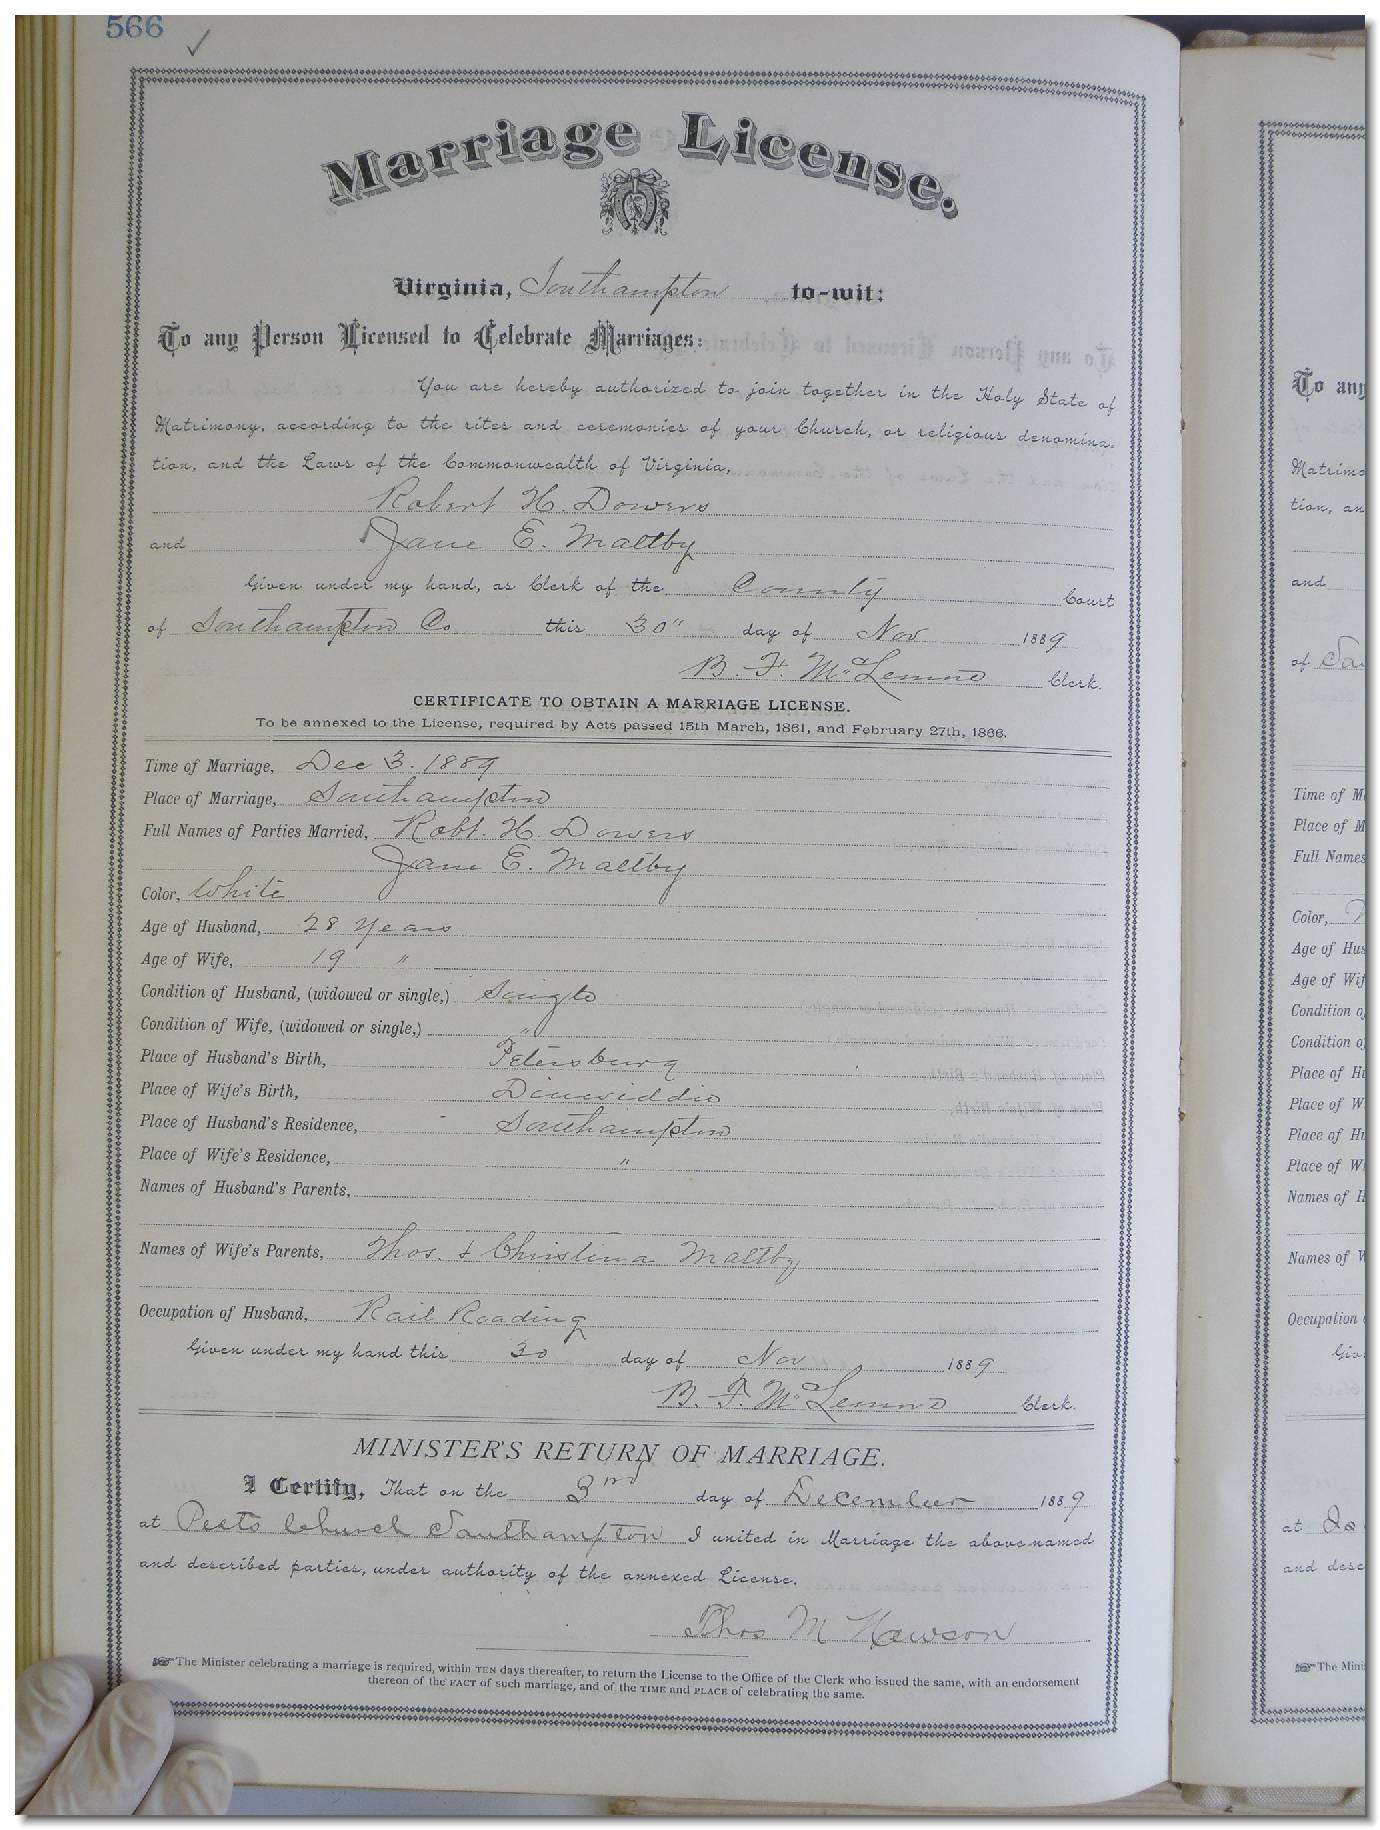 566
Marriage License.
Virginia, Southampton to-wit:
To any Person Licensed to Celebrate Marriages:
You are hereby authorized to join together in the Holy State of
Matrimony, according to the rites and ceremonies of your Church, or religious denomina-
tion, and the Laws of the Commonwealth of Virginia,
Robert H. Dowers
and Jane E. Maltby
Given under my hand, as Clerk of the County Court
of Southampton Co this 30" day of Nov 1889
B. F. McLemore Clerk.
CERTIFICATE TO OBTAIN A MARRIAGE LICENSE.
To be annexed to the License, required by Acts passed 15th March, 1861, and February 27th, 1866.
Time of Marriage, Dec 3. 1889
Place of Marriage, Southampton
Full Names of Parties Married, Robt. H. Dowers
Jane E. Maltby
Color, White
Age of Husband, 28 Years
Age of Wife, 19 "
Condition of Husband, (widowed or single,) Single
Condition of Wife, (widowed or single,) "
Place of Husband's Birth, Petersburg
Place of Wife's Birth, Dinwiddie
Place of Husband's Residence, Southampton
Place of Wife's Residence, "
Names of Husband's Parents,
Names of Wife's Parents, Thos. & Christina Maltby
Occupation of Husband, Rail Roading
Given under my hand this 30 day of Nov 1889
B. F. McLemore Clerk.
MINISTER'S RETURN OF MARRIAGE.
I Certify, That on the 3rd day of December 1889
at Church Southampton I united in Marriage the above-named
and described parties, under authority of the annexed License.
Thos M
The Minister celebrating a marriage is required, within TEN days thereafter, to return the License to the Office of the Clerk who issued the same, with an endorsement
thereon of the FACT of such marriage, and of the TIME and PLACE of celebrating the same.
To any
and
of
Time of
Place of
Full Names
Color,
Age of
Age of
Condition
Condition
Place of
Place of
Place of
Place of
Names of
Names of
Occupation
at
and
The